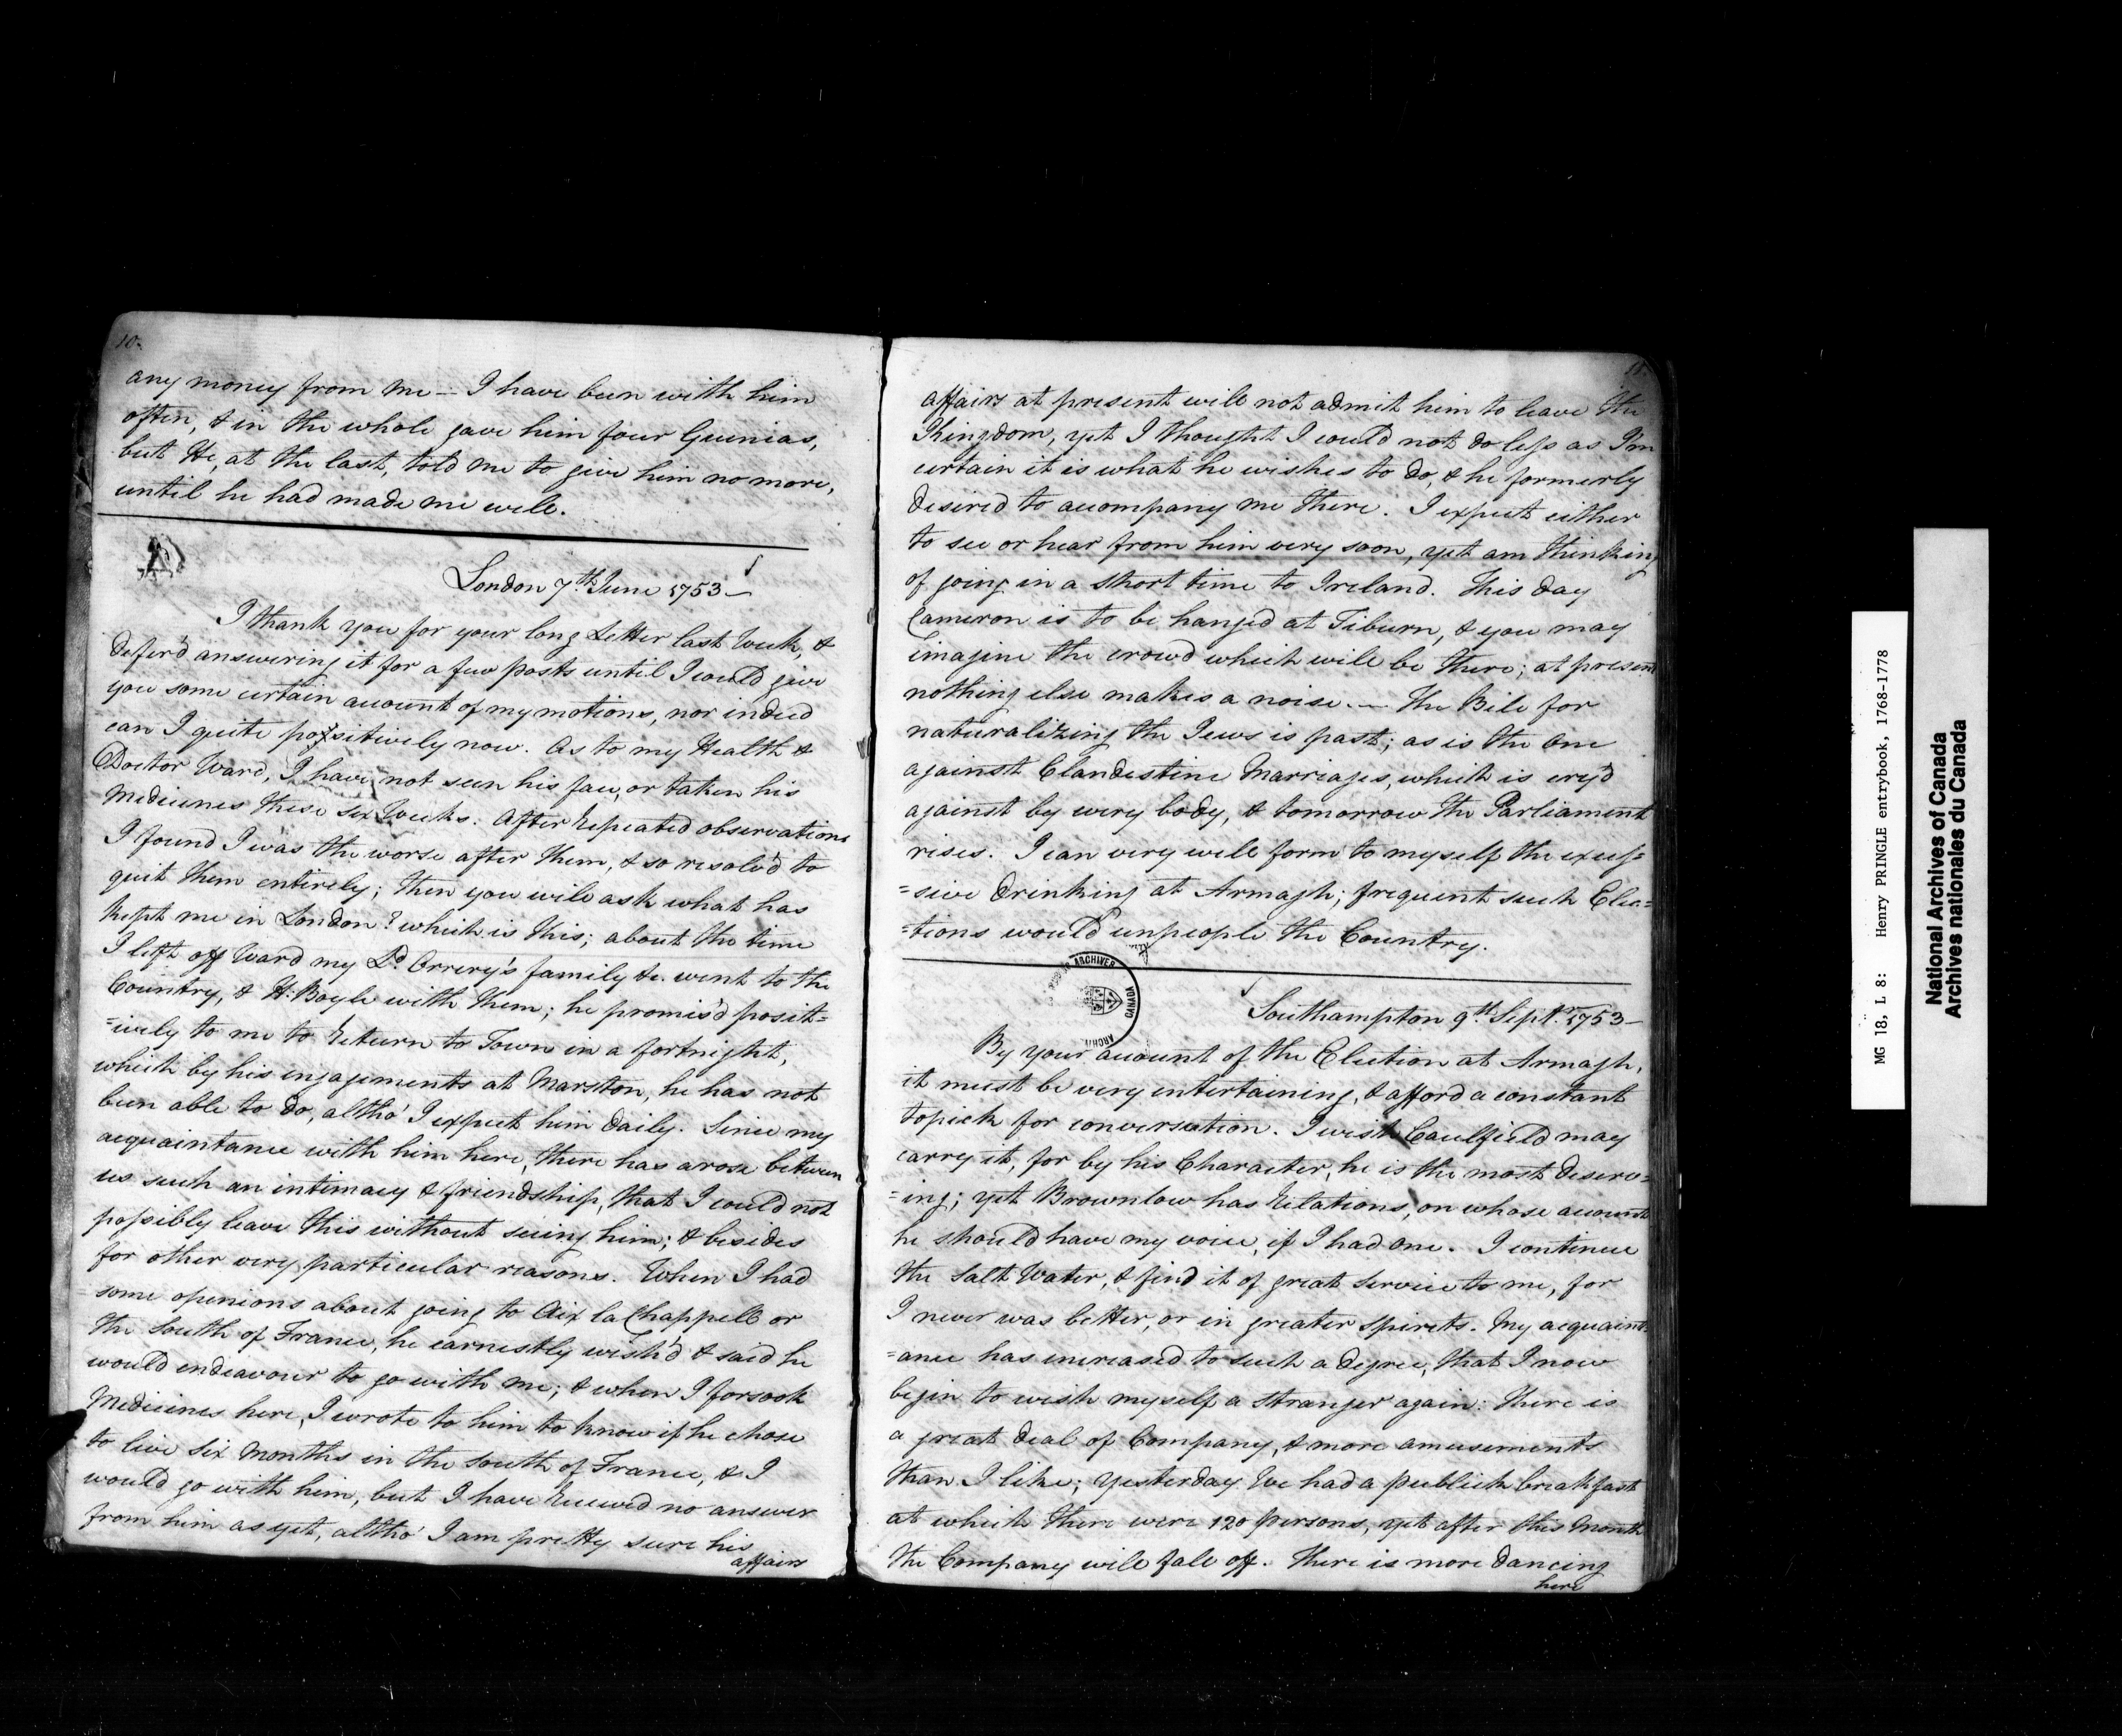 10.
any money from me — I have been with him
often, & in the whole gave him four Guinias,
but He, at the last, told me to give him no more,
until he had made me well.
London 7th. June 1753 —
I thank you for your long Letter last Week, &
defer'd answering it for a few posts until I could give
you some certain account of my motions, nor indeed
can I quite possitively now. As to my Health &
Doctor Ward, I have not seen his face, or taken his
Medicines these six Weeks. After repeated observations
I found I was the worse after them, & so resolv'd to
quit them entirely; then you will ask what has
kept me in London? which is this; about the time
I left off Ward my Ld. Orrery's family &c. went to the
Country, & H: Boyle with them; he promis'd posit=
=ively to me to return to Town in a fortnight,
which by his engagements at Marston, he has not
been able to do, altho' I expect him daily. Since my
acquaintance with him here, there has arose between
us such an intimacy & friendship, that I could not
possibly leave this without seeing him; & besides
for other very particular reasons. When I had
some opinions about going to Aix la Chappell or
the South of France, he earnestly wish'd & said he
would endeavour to go with me; & when I forsook
Medicines here, I wrote to him to know if he chose
to live six months in the South of France, & I
would go with him, but I have received no answer
from him as yet, altho' I am pretty sure his
affairs
11.
affairs at present will not admit him to leave the
Kingdom, yet I thought I could not do less as I'm
certain it is what he wishes to do, & he formerly
desired to accompany me there. I expect either
to see or hear from him very soon, yet am thinking
of going in a short time to Ireland. This day
Cameron is to be hanged at Tiburn, & you may
imagine the crowd which will be there; at present
nothing else makes a noise. — The Bill for
naturalizing the Jews is past; as is the One
against Clandestine Marriages, which is cry'd
against by every body, & tomorrow the Parliament
rises. I can very well form to myself the exces=
=sive drinking at Armagh; frequent such Elec=
=tions would unpeople the Country.
ARCHIVES
CANADA
Southampton 9th. Septr. 1753 —
By your account of the Election at Armagh,
it must be very entertaining, & afford a constant
topick for conversation. I wish Caulfield may
carry it, for by his Character, he is the most deserv=
=ing; yet Brownlow has relations, on whose account
he should have my voice, if I had one. I continue
the Salt Water, & find it of great service to me, for
I never was better, or in greater spirits. My acquaint=
=ance has increased to such a degree, that I now
begin to wish myself a stranger again: There is
a great deal of Company, & more amusements
than I like; yesterday We had a publick breakfast
at which there were 120 persons, yet after this Month
the Company will fall off. There is more dancing
here
MG 18, L 8: Henry PRINGLE entrybook, 1768-1778
National Archives of Canada
Archives nationales du Canada